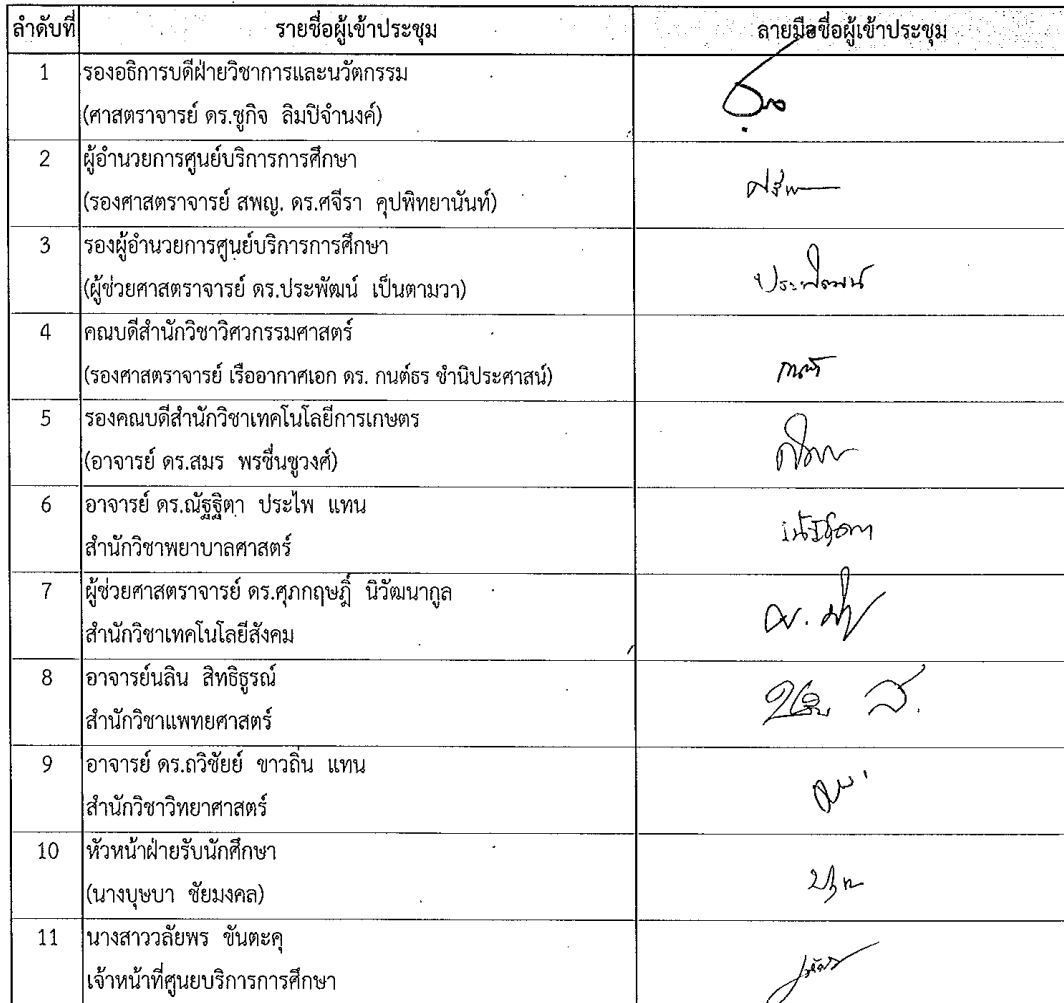 ลำดับที่ รายชื่อผู้เข้าประชุม ลายมือชื่อผู้เข้าประชุม
1 รองอธิการบดีฝ่ายวิชาการและนวัตกรรม
(ศาสตราจารย์ ดร.ชูกิจ ลิมปิจำนงค์)
2 ผู้อำนวยการศูนย์บริการการศึกษา
(รองศาสตราจารย์ สพญ. ดร.ศจีรา คุปพิทยานันท์)
3 รองผู้อำนวยการศูนย์บริการการศึกษา
(ผู้ช่วยศาสตราจารย์ ดร.ประพัฒน์ เป็นตามวา) ประพัฒน์
4 คณบดีสำนักวิชาวิศวกรรมศาสตร์
(รองศาสตราจารย์ เรืออากาศเอก ดร. กนต์ธร ชำนิประศาสน์)
5 รองคณบดีสำนักวิชาเทคโนโลยีการเกษตร
(อาจารย์ ดร.สมร พรชื่นชูวงศ์)
6 อาจารย์ ดร.ณัฐฐิตา ประไพ แทน
สำนักวิชาพยาบาลศาสตร์
7 ผู้ช่วยศาสตราจารย์ ดร.ศุภกฤษฎิ์ นิวัฒนากูล
สำนักวิชาเทคโนโลยีสังคม
8 อาจารย์นลิน สิทธิธูรณ์
สำนักวิชาแพทยศาสตร์
9 อาจารย์ ดร.ถวิชัยย์ ขาวถิ่น แทน
สำนักวิชาวิทยาศาสตร์
10 หัวหน้าฝ่ายรับนักศึกษา
(นางบุษบา ชัยมงคล)
11 นางสาววลัยพร ขันตะคุ
เจ้าหน้าที่ศูนยบริการการศึกษา